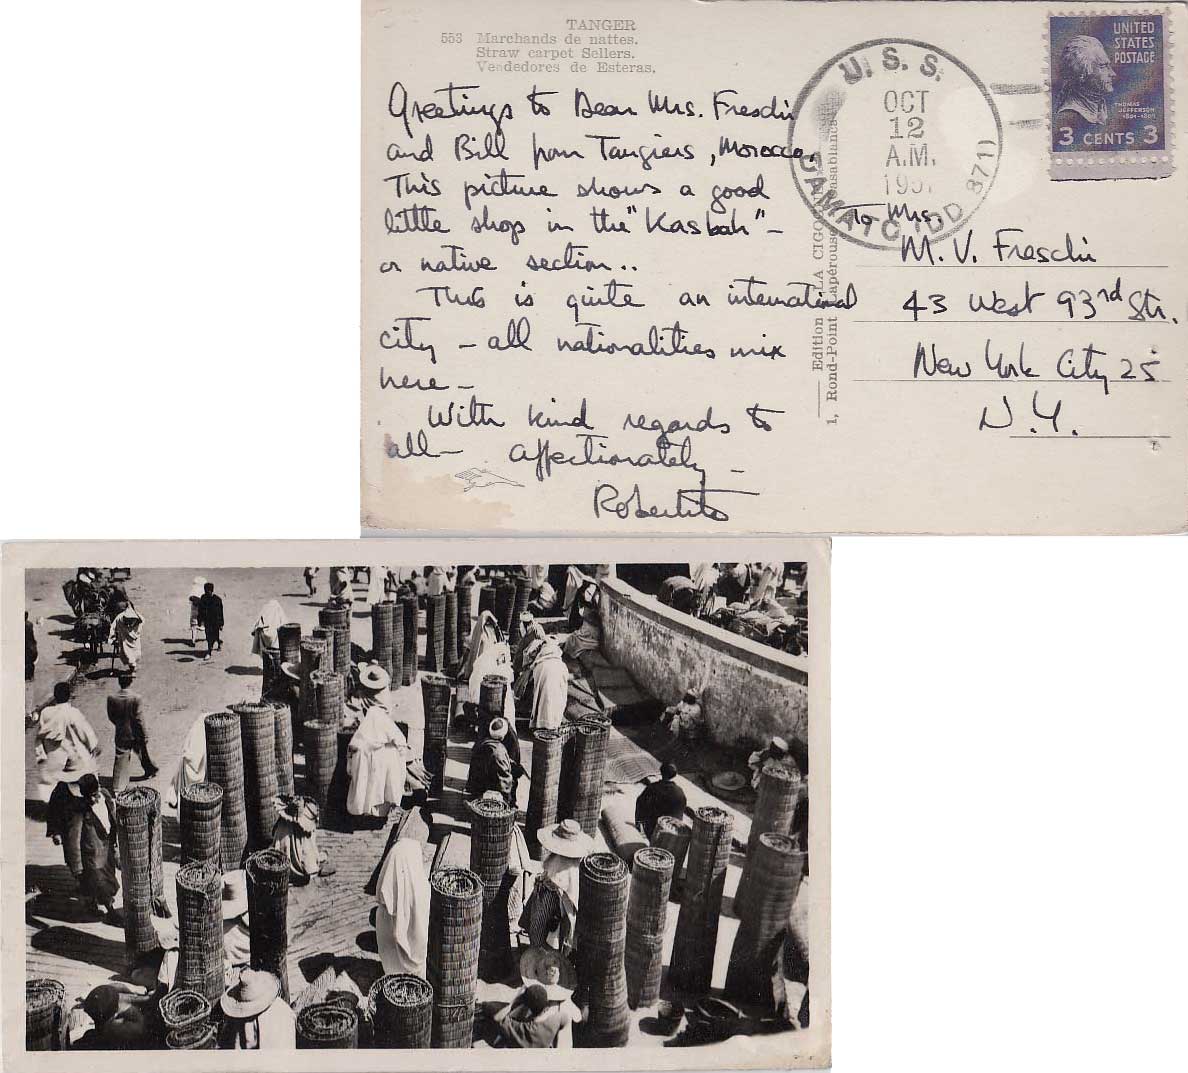 TANGER
553 Marchands de nattes.
Straw carpet Sellers.
Vendedores de Esteras.
Greetings to Dear Mrs. Freschi
and Bill from Tangiers, Morocco.
This picture shows a good
little shop in the "Kasbah" -
or native section..
This is quite an international
city - all nationalities mix
here -
With kind regards to
all - affectionately -
Robertito
Edition LA CIGO
1, Rond-Point Lapérouse Casablanca
U. S. S.
OCT
12
A.M.
DAMATO (DD 871)
UNITED
STATES
POSTAGE
THOMAS
JEFFERSON
1801-1809
3 CENTS 3
To Mrs.
M. V. Freschi
43 West 93rd Str.
New York City 25
N.Y.